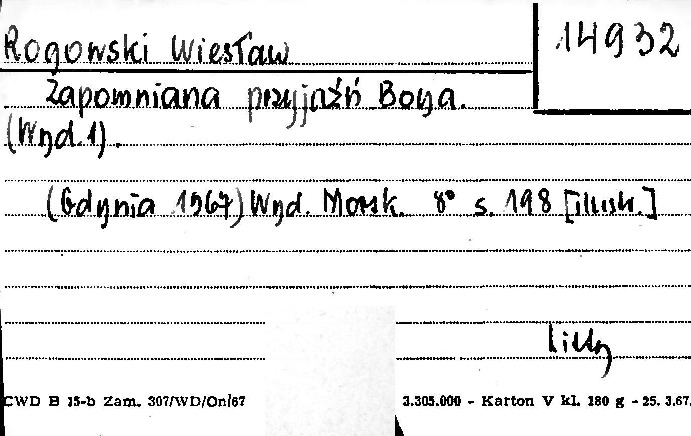 Rogowski Wiesław
14932
Zapomniana przyjaźń Boya.
(Wyd. 1).
(Gdynia 1967) Wyd. Morsk. 8° s. 198 [ilustr.]
CWD B 15-b Zam. 307/WD/On/67
3.305.000 - Karton V kl. 180 g - 25. 3.67.